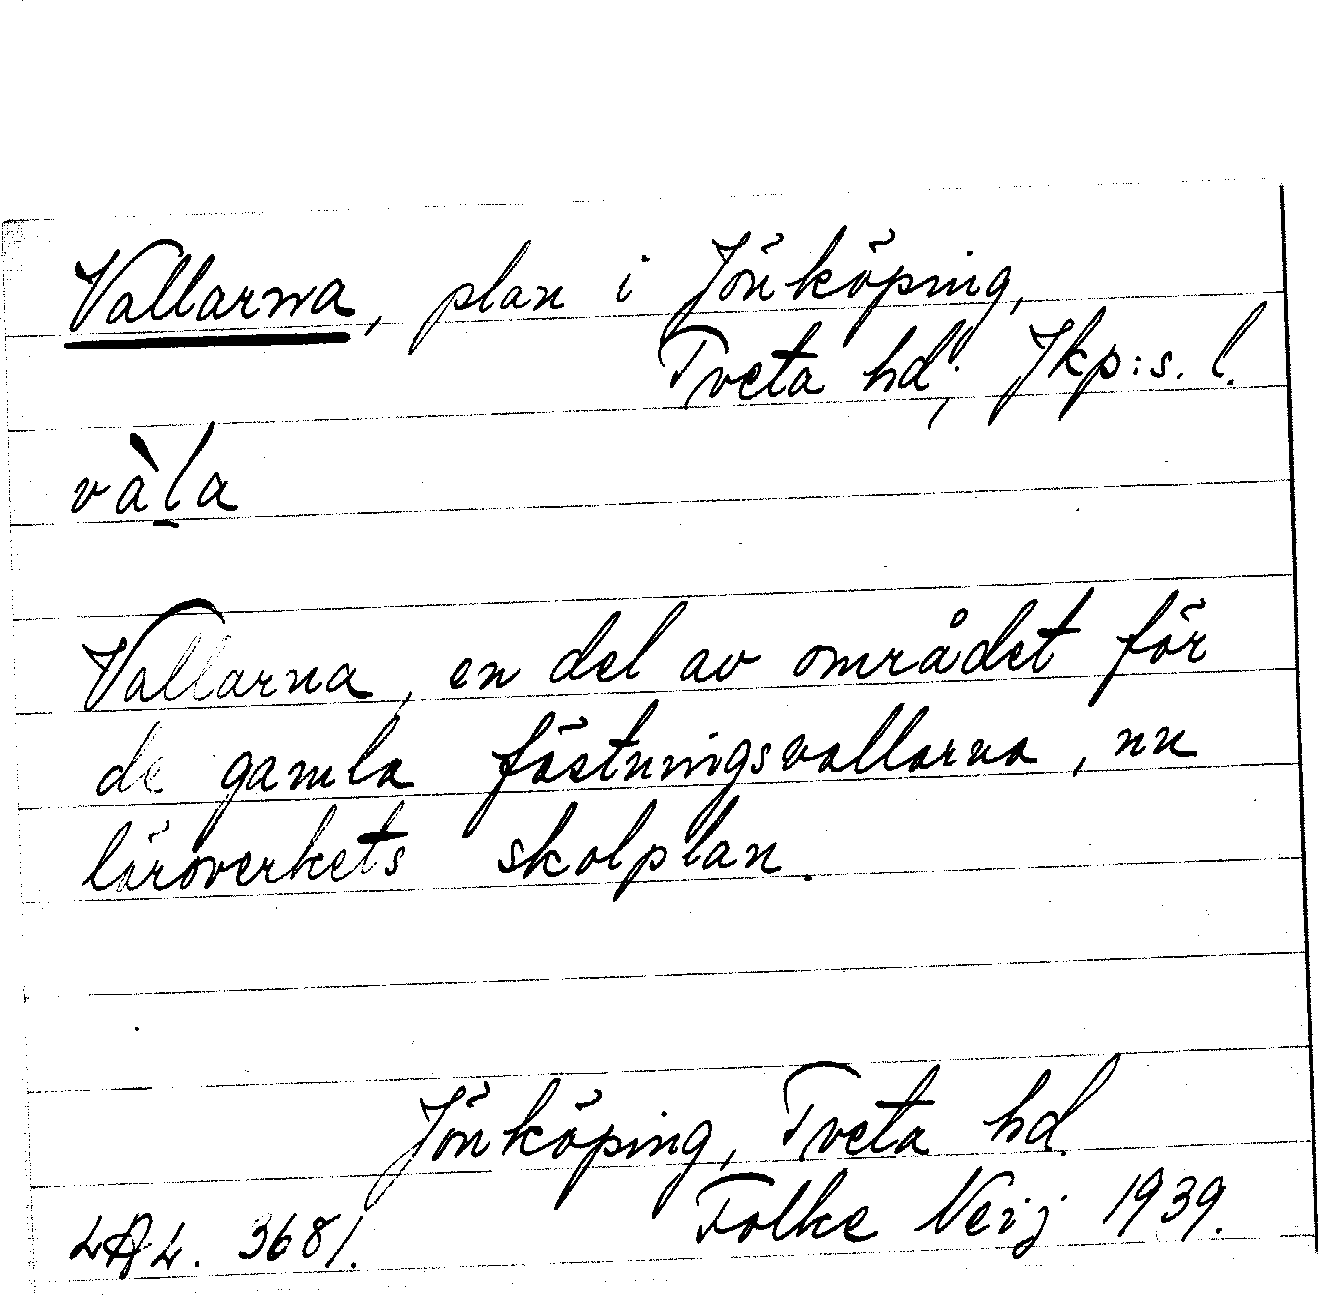 Vallarna, plan i Jönköping,
Tveta hd, Jkp:s. l.
vàl̠a
Vallarna, en del av området för
de gamla fästningsvallarna, nu
läroverkets skolplan.
Jönköping, Tveta hd.
LAL. 3681. Folke Neij 1939.